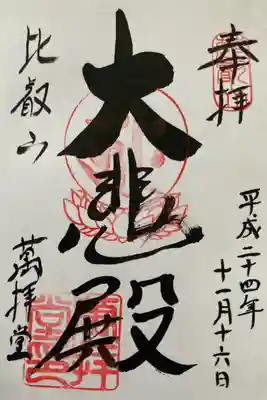 奉拝
平成二十四年
十一月十六日
大悲殿
比叡山
萬拝堂